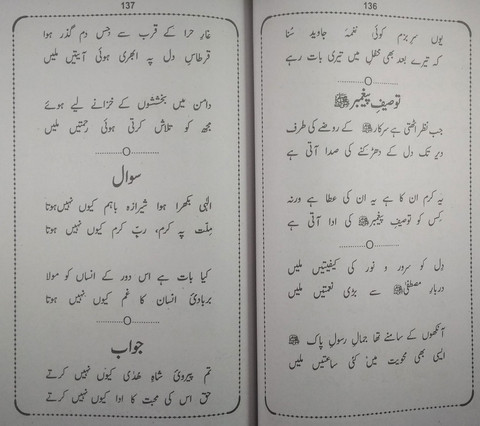 136
یوں سرِ بزم کوئی نغمۂ جاوید سُنا
کہ تیرے بعد بھی محفل میں تیری بات رہے
توصیفِ پیغمبر ﷺ
جب نظر اٹھتی ہے سرکار ﷺ کے روضے کی طرف
دیر تک دل کے دھڑکنے کی صدا آتی ہے
یہ کرم ان کا ہے یہ ان کی عطا ہے ورنہ
کِس کو توصیفِ پیغمبر ﷺ کی ادا آتی ہے
دل کو سرور و نور کی کیفیتیں ملیں
دربارِ مصطفیٰ ﷺ سے بڑی نعمتیں ملیں
آنکھوں کے سامنے تھا جمالِ رسولِ پاک ﷺ
ایسی بھی محویت میں کئی ساعتیں ملیں
137
غارِ حرا کے قرب سے جس دم گذر ہوا
قرطاسِ دل پہ ابھری ہوئی آیتیں ملیں
دامن میں بخششوں کے خزانے لیے ہوئے
مجھ کو تلاش کرتی ہوئی رحمتیں ملیں
سوال
الٰہی بکھرا ہوا شیرازہ باہم کیوں نہیں ہوتا
مِلّت پہ کرم، ربِّ کرم کیوں نہیں ہوتا
کیا بات ہے اس دور کے انساں کو مولا
بربادیٔ انسان کا غم کیوں نہیں ہوتا
جواب
تم پیرویٔ شاہِ ھدٰی کیوں نہیں کرتے
حق اس کی محبت کا ادا کیوں نہیں کرتے